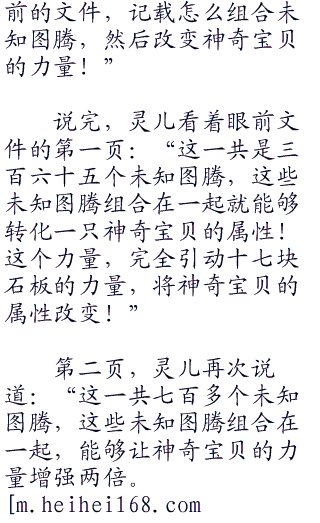 前的文件，记载怎么组合未
知图腾，然后改变神奇宝贝
的力量！”
说完，灵儿看着眼前文
件的第一页：“这一共是三
百六十五个未知图腾，这些
未知图腾组合在一起就能够
转化一只神奇宝贝的属性！
这个力量，完全引动十七块
石板的力量，将神奇宝贝的
属性改变！”
第二页，灵儿再次说
道：“这一共七百多个未知
图腾，这些未知图腾组合在
一起，能够让神奇宝贝的力
量增强两倍。
[m.heihei168.com